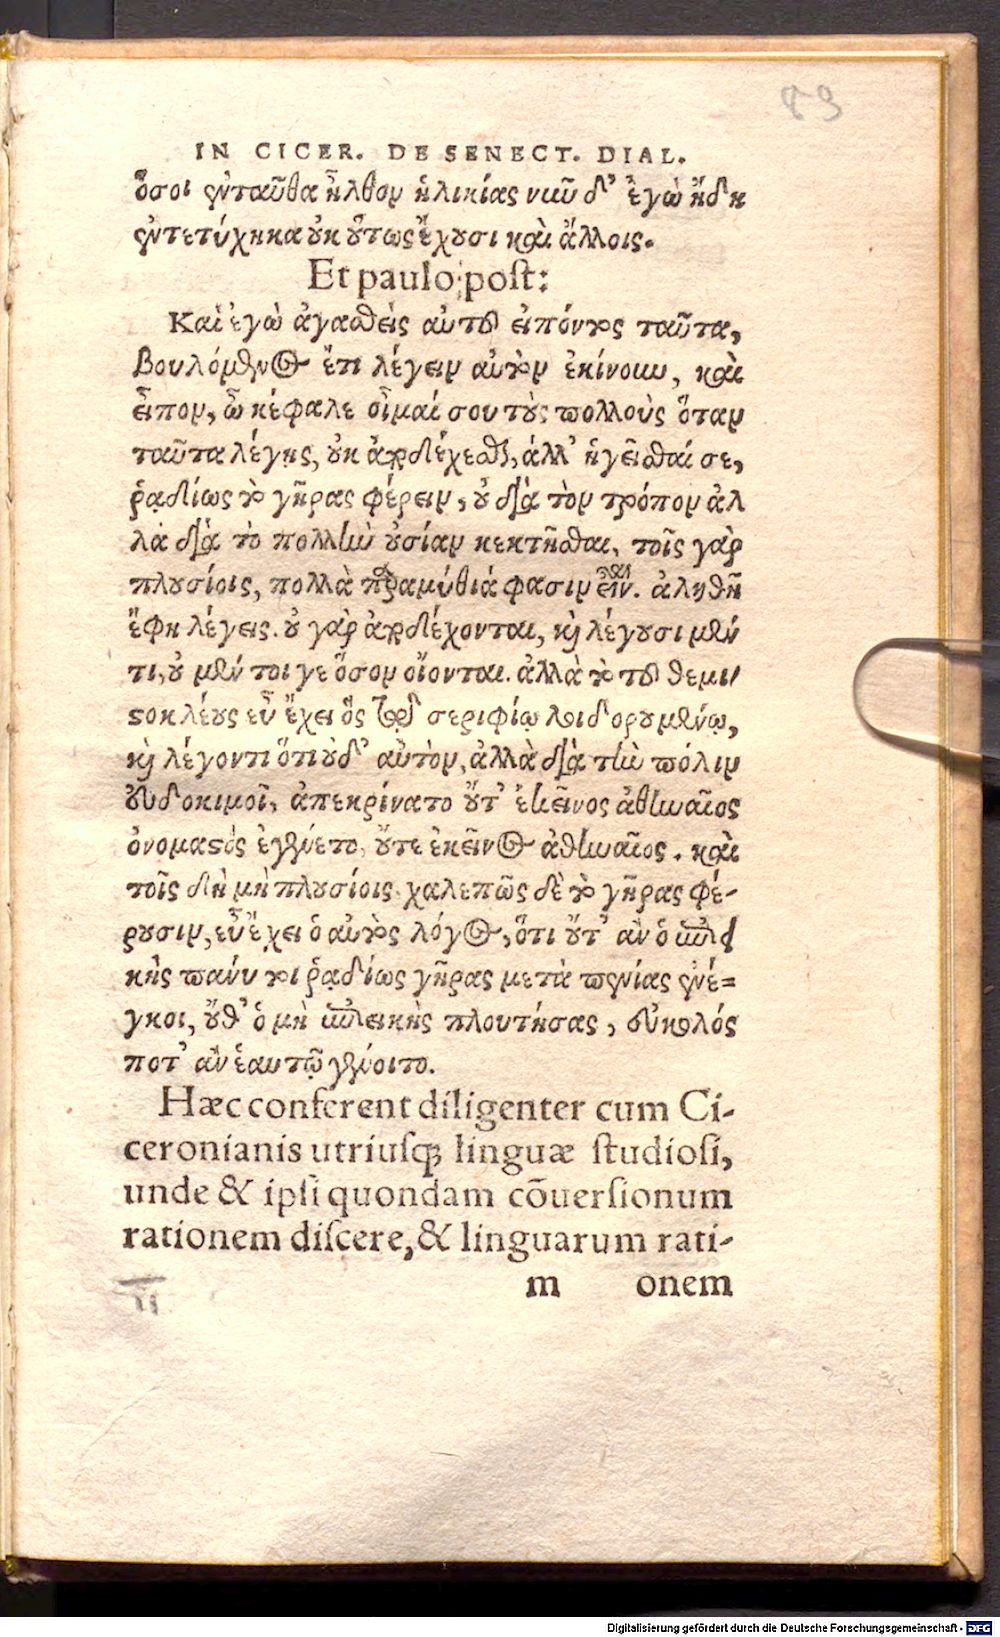 89
IN CICER. DE SENECT. DIAL.
ὅσοι ἐνταῦθα ἦλθον ἡλικίας νιῦ δ' ἐγὼ ἤδη
ἐντετύχηκα οὐκ οὕτως ἔχουσι καὶ ἄλλοις.
Et paulo post:
Καὶ ἐγὼ ἀγασθεὶς αὐτοῦ εἰπόντος ταῦτα,
βουλόμενος ἔτι λέγειν αὐτὸν ἐκίνουν, καὶ
εἶπον, ὦ κέφαλε οἶμαί σου τοὺς πολλοὺς ὅταν
ταῦτα λέγῃς, οὐκ ἀποδέχεσθαι, ἀλλ' ἡγεῖσθαί σε,
ῥᾳδίως τὸ γῆρας φέρειν, οὐ διὰ τὸν τρόπον ἀλ
λὰ διὰ τὸ πολλὴν οὐσίαν κεκτῆσθαι, τοῖς γὰρ
πλουσίοις, πολλὰ παραμύθιά φασιν εἶναι. ἀληθῆ
ἔφη λέγεις. οὐ γὰρ ἀποδέχονται, καὶ λέγουσι μέν
τι, οὐ μέν τοι γε ὅσον οἴονται. ἀλλὰ τὸ τοῦ θεμι
στοκλέους εὖ ἔχει ὃς τῷ σεριφίῳ λοιδορουμένῳ,
καὶ λέγοντι ὅτι οὐδ' αὐτὸν, ἀλλὰ διὰ τὴν πόλιν
εὐδοκιμοῖ, ἀπεκρίνατο οὔτ' ἐκεῖνος ἀθηναῖος
ὀνομαστὸς ἐγένετο, οὔτε ἐκεῖνος ἀθηναῖος. καὶ
τοῖς δὴ μὴ πλουσίοις χαλεπῶς δὲ τὸ γῆρας φέ-
ρουσιν, εὖ ἔχει ὁ αὐτὸς λόγος, ὅτι οὔτ' ἂν ὁ ἐπιει
κὴς πανύ τοι ῥᾳδίως γῆρας μετὰ πενίας ἐνέ=
γκοι, οὔθ' ὁ μὴ ἐπιεικὴς πλουτήσας, εὔκολός
ποτ' ἂν ἑαυτῷ γένοιτο.
Hæc conferent diligenter cum Ci-
ceronianis utriusq; linguæ studiosi,
unde & ipsi quondam cōuersionum
rationem discere, & linguarum rati-
m onem
Digitalisierung gefördert durch die Deutsche Forschungsgemeinschaft - DFG